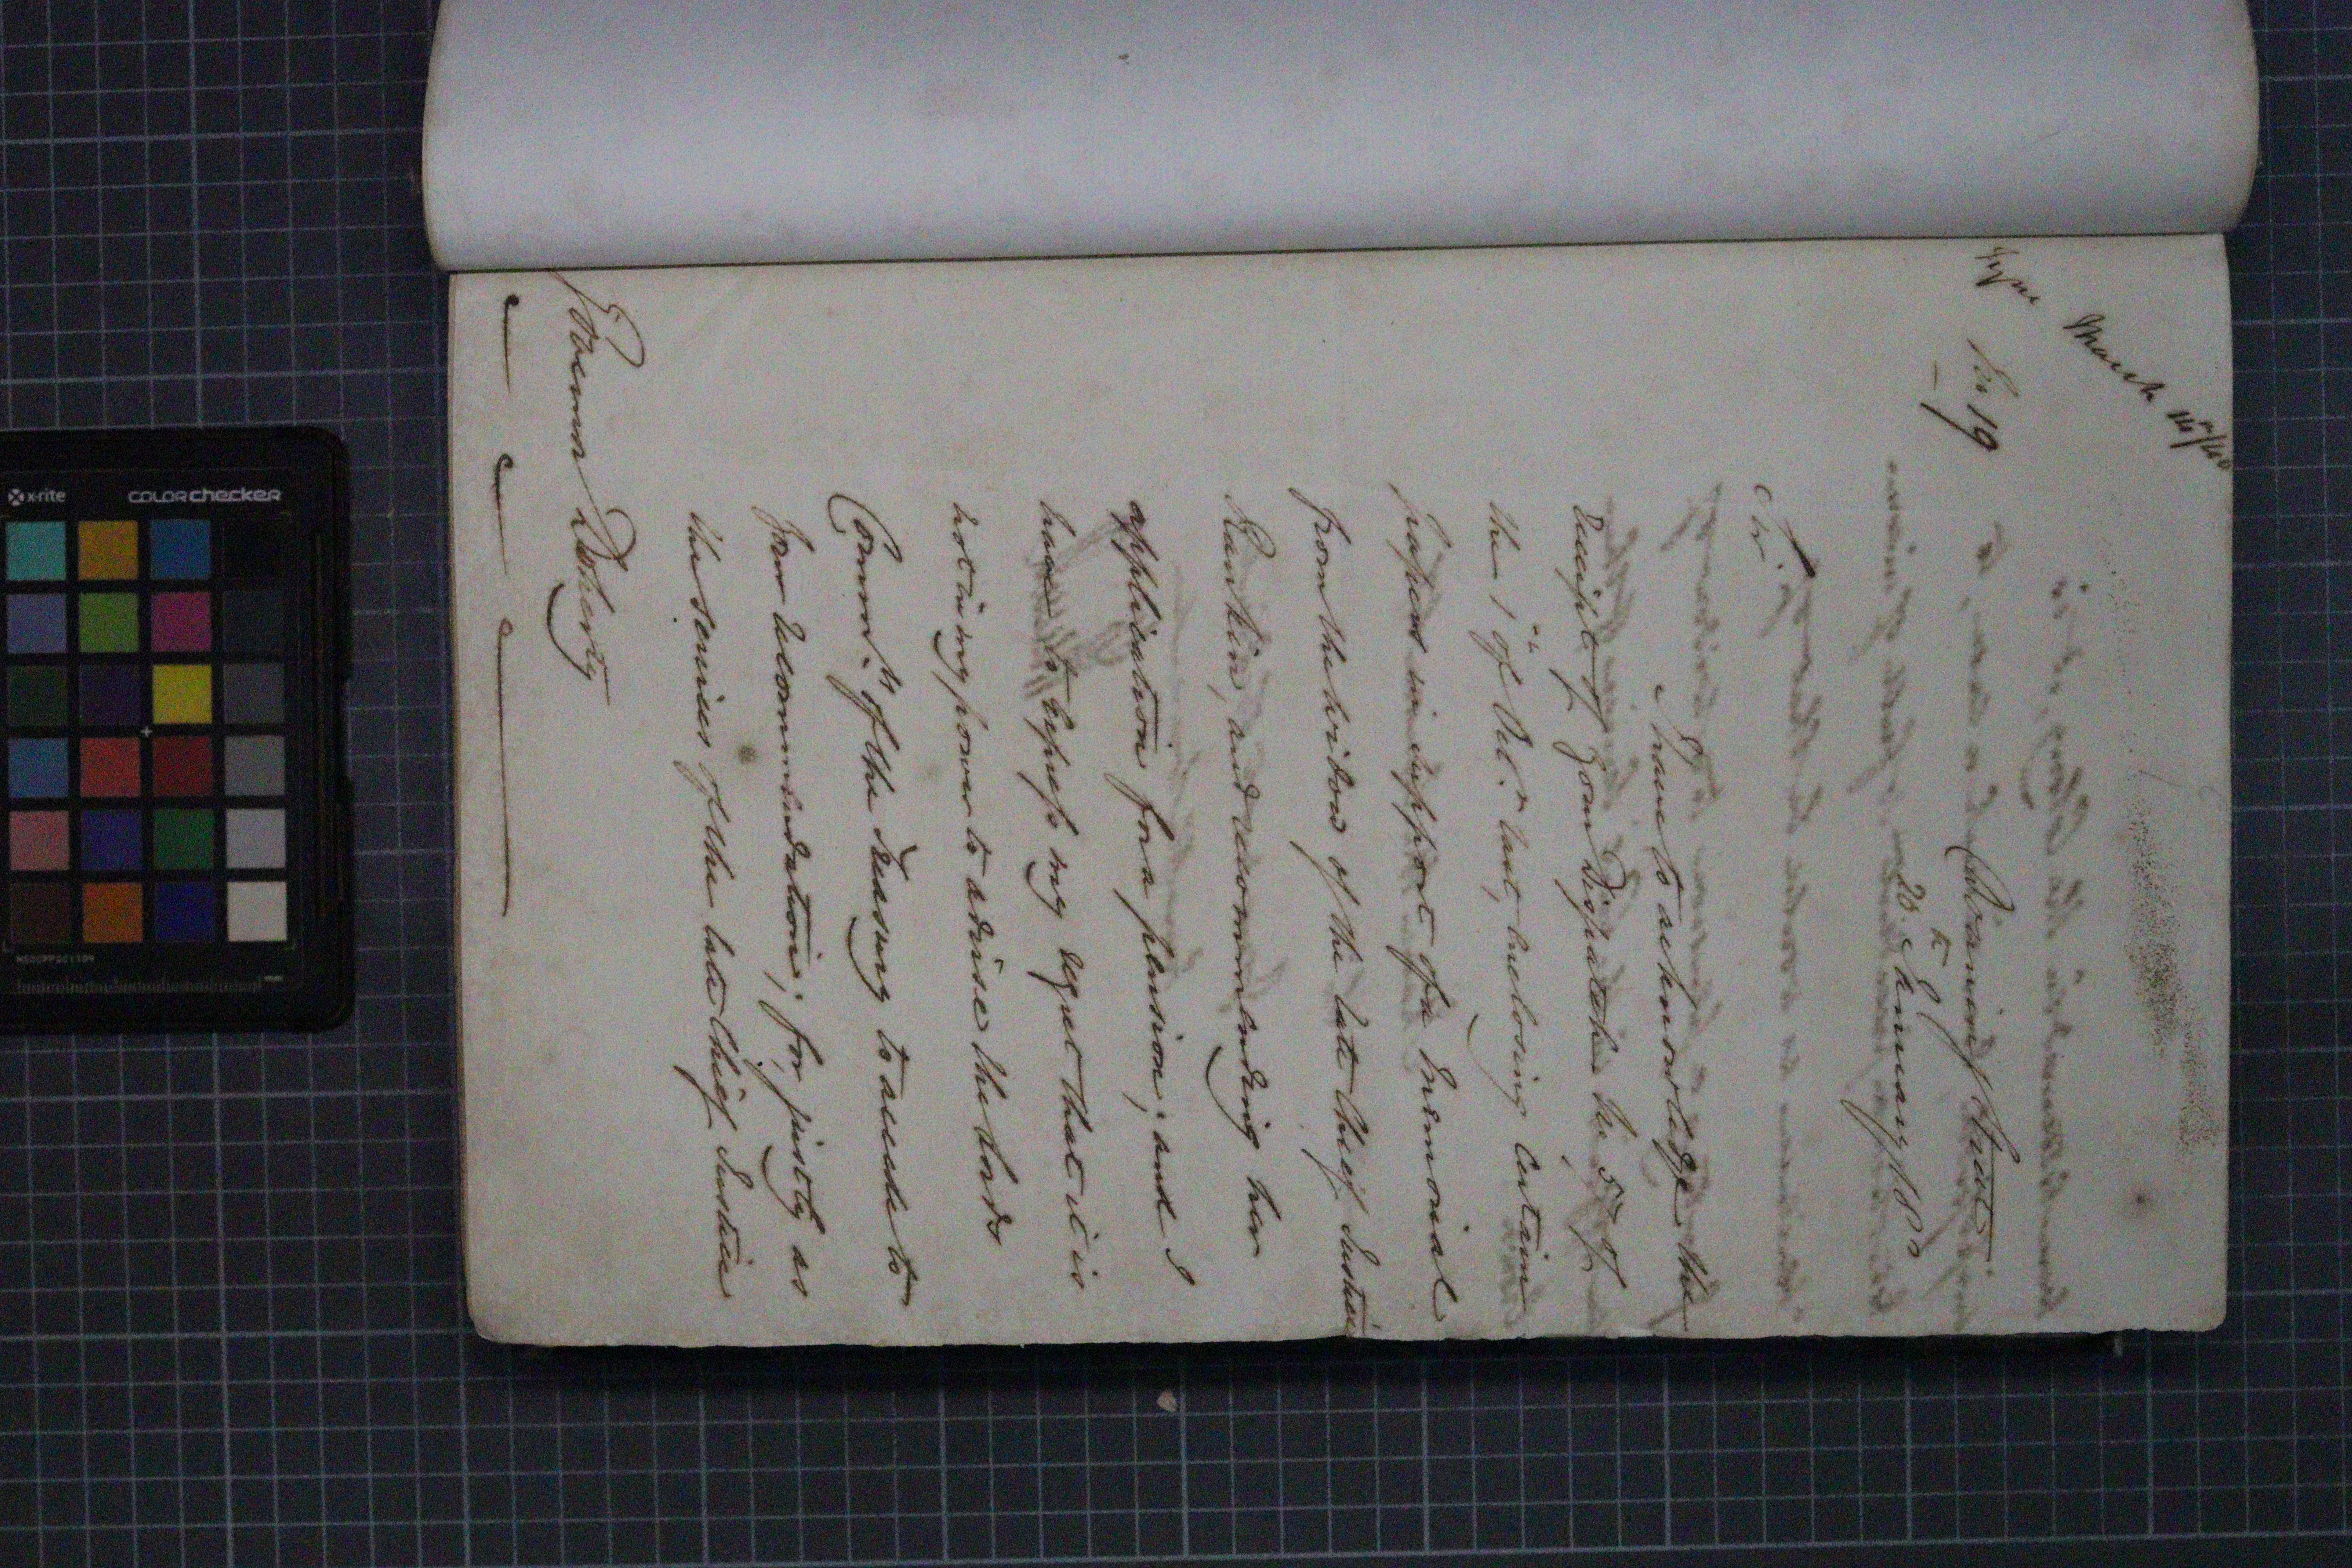 March 14th/40
No 19
Downing Street
20th January 1840
Sir,
I have to acknowledge the
receipt of your Dispatch No 57 of
the 1st of Octr last, enclosing certain
papers in support of a Memorial
from the widow of the late Chief Justice
Rankin, and recommending her
application for a pension; and I
have to express my regret that it is
not in my power to advise the Lords
Commrs of the Treasury to accede to
your recommendation; for, justly as
the services of the late Chief Justice
Governor Doherty
x-rite
colorchecker